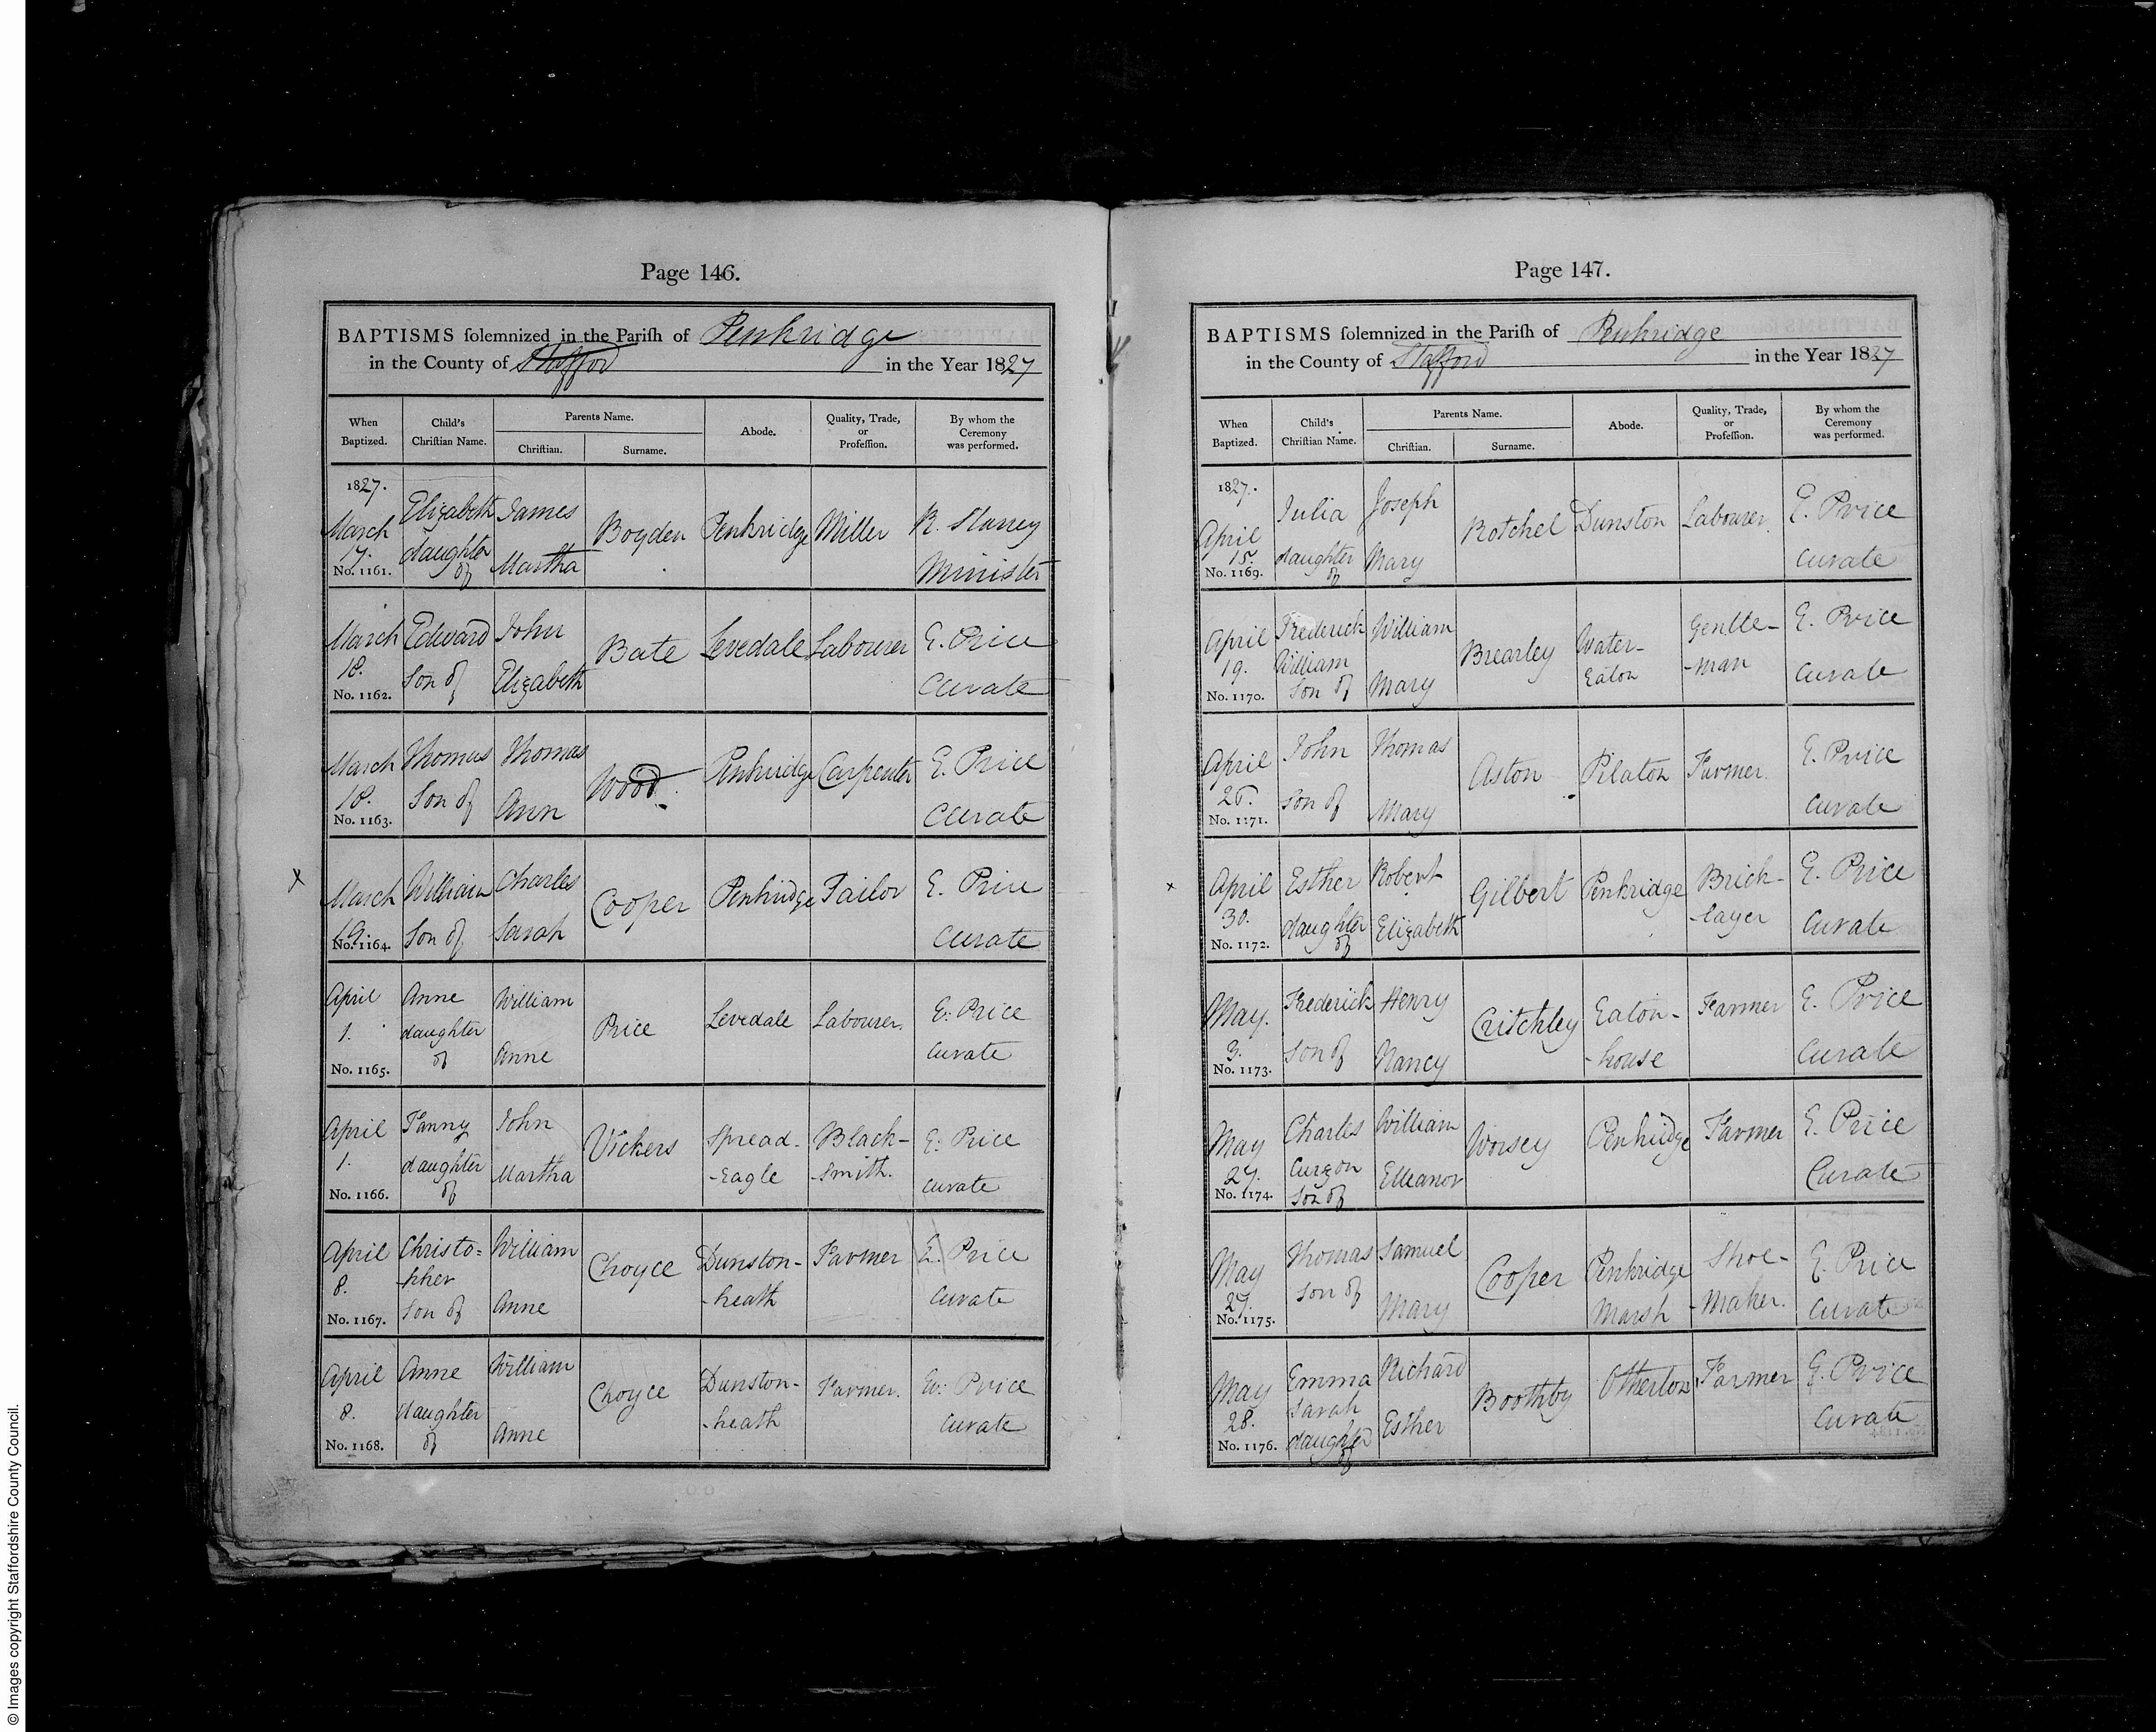 Page 146.
BAPTISMS ſolemnized in the Pariſh of Penkridge
in the County of Stafford in the Year 1827
When Baptized. Child's Christian Name. Parents Name. Abode. Quality, Trade, or Profeſſion. By whom the Ceremony was performed.
Chriſtian. Surname.
1827.
March 17. Elizabeth daughter of James Martha Bogden Penkridge Miller R. Slaney Minister
No. 1161.
March 18. Edward Son of John Elizabeth Bate Levedale Labourer E. Price Curate
No. 1162.
March 18. Thomas Son of Thomas Ann Wood Penkridge Carpenter E. Price Curate
No. 1163.
x March 19. William Son of Charles Sarah Cooper Penkridge Tailor E. Price Curate
No. 1164.
April 1. Anne daughter of William Anne Price Levedale Labourer. E. Price Curate
No. 1165.
April 1. Fanny daughter of John Martha Vickers Spread-Eagle Black-smith. E. Price Curate
No. 1166.
April 8. Christo=pher Son of William Anne Choyce Dunston-heath Farmer E. Price Curate
No. 1167.
April 8. Anne daughter of William Anne Choyce Dunston-heath Farmer. E. Price Curate
No. 1168.
Page 147.
BAPTISMS ſolemnized in the Pariſh of Penkridge
in the County of Stafford in the Year 1827
When Baptized. Child's Christian Name. Parents Name. Abode. Quality, Trade, or Profeſſion. By whom the Ceremony was performed.
Chriſtian. Surname.
1827.
April 15. Julia daughter of Joseph Mary Rotchel Dunston Labourer. E. Price Curate
No. 1169.
April 19. Frederick William Son of William Mary Brearley Water-Eaton Gentle-man E. Price Curate
No. 1170.
April John Son of Thomas Mary Aston Pilaton Farmer. E. Price Curate
No. 1171.
x April 30. Esther daughter of Robert Elizabeth Gilbert Penkridge Brick-layer E. Price Curate
No. 1172.
May. 3. Frederick Son of Henry Nancy Critchley Eaton-house Farmer E. Price Curate
No. 1173.
May 27. Charles Curzon Son of William Elleanor Worsey Penkridge Farmer E. Price Curate
No. 1174.
May 27. Thomas Son of Samuel Mary Cooper Penkridge Marsh Shoe-Maker. E. Price Curate
No. 1175.
May 28. Emma Sarah daughter of Richard Esther Boothby Otherton Farmer E. Price Curate
No. 1176.
© Images copyright Staffordshire County Council.